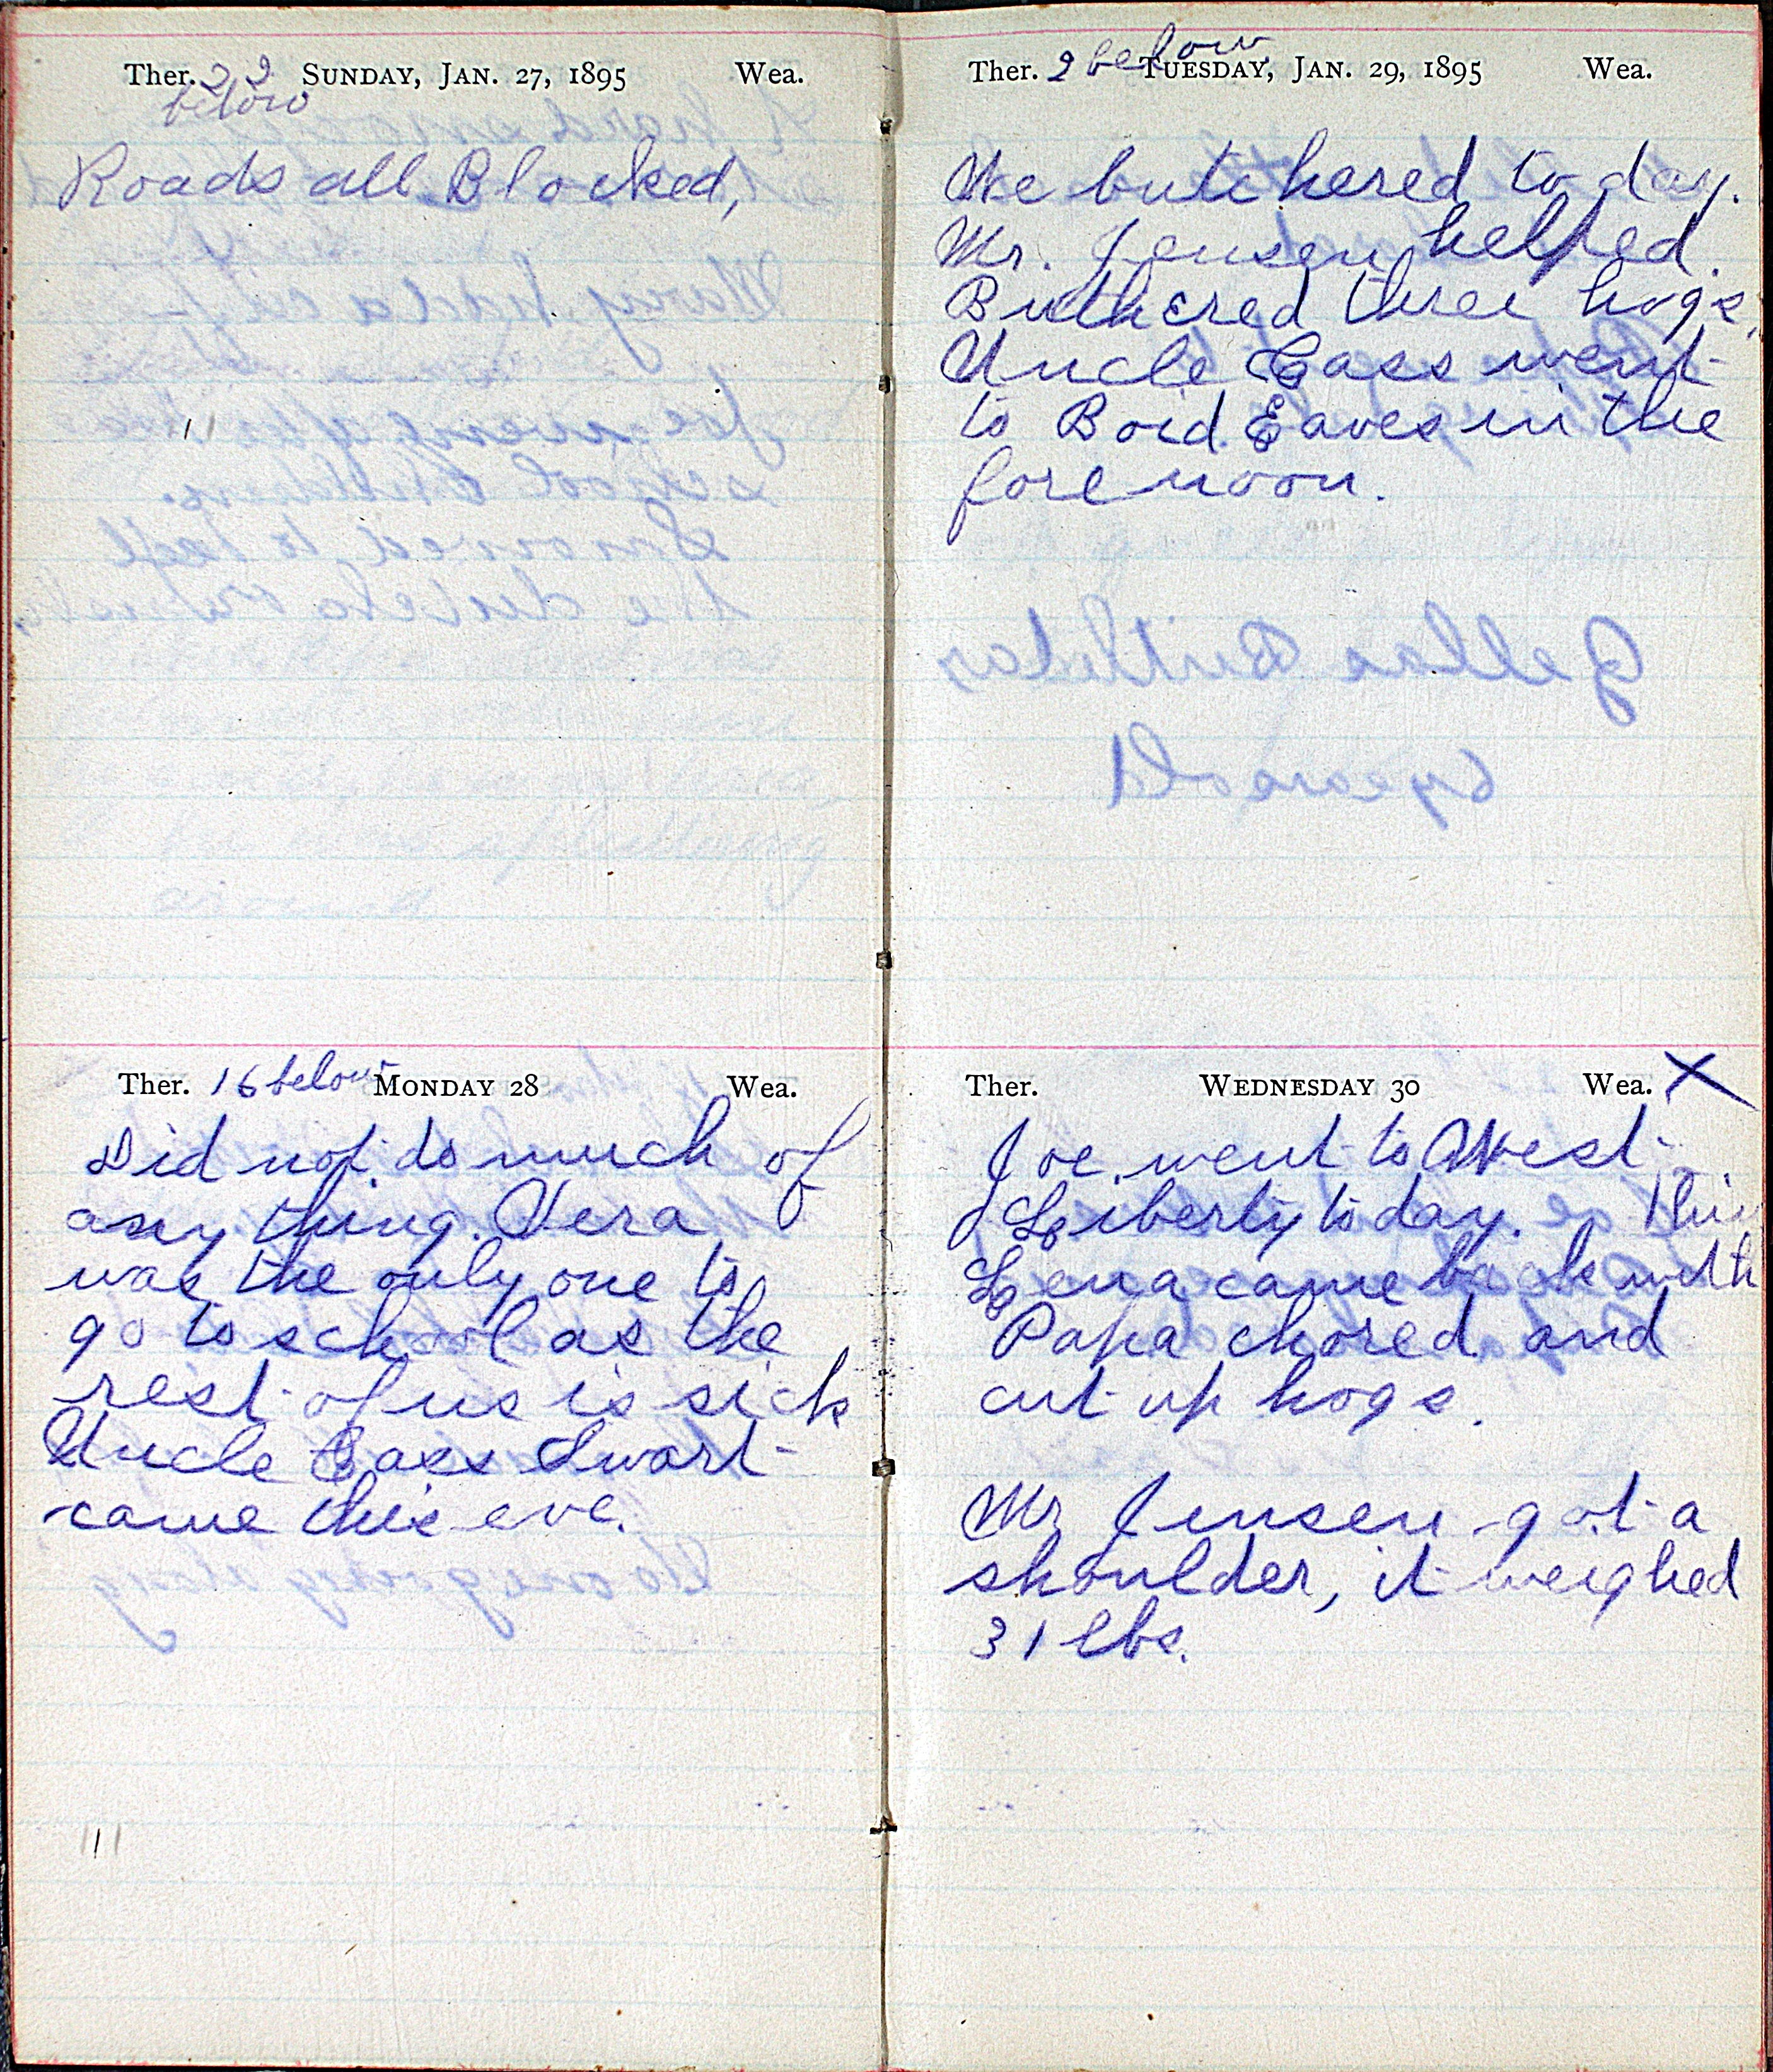 Ther. 22 SUNDAY, JAN. 27, 1895 Wea.
below
Roads all Blocked,
Ther. 16 below MONDAY 28 Wea.
Did not do much of
any thing. Vera
was the only one to
go to school as the
rest of us is sick
Uncle Cass Swart
came this eve.
Ther. 2 below TUESDAY, JAN. 29, 1895 Wea.
We butchered to day.
Mr. Jensen helped.
Buthcered three hogs.
Uncle Cass went
to Boid Eaves in the
forenoon.
Ther. WEDNESDAY 30 Wea. X
Joe went to West
Liberty to day.
Lena came back with
Papa chored and
cut up hogs.
Mr Jensen got a
shoulder, it weighed
31 lbs.